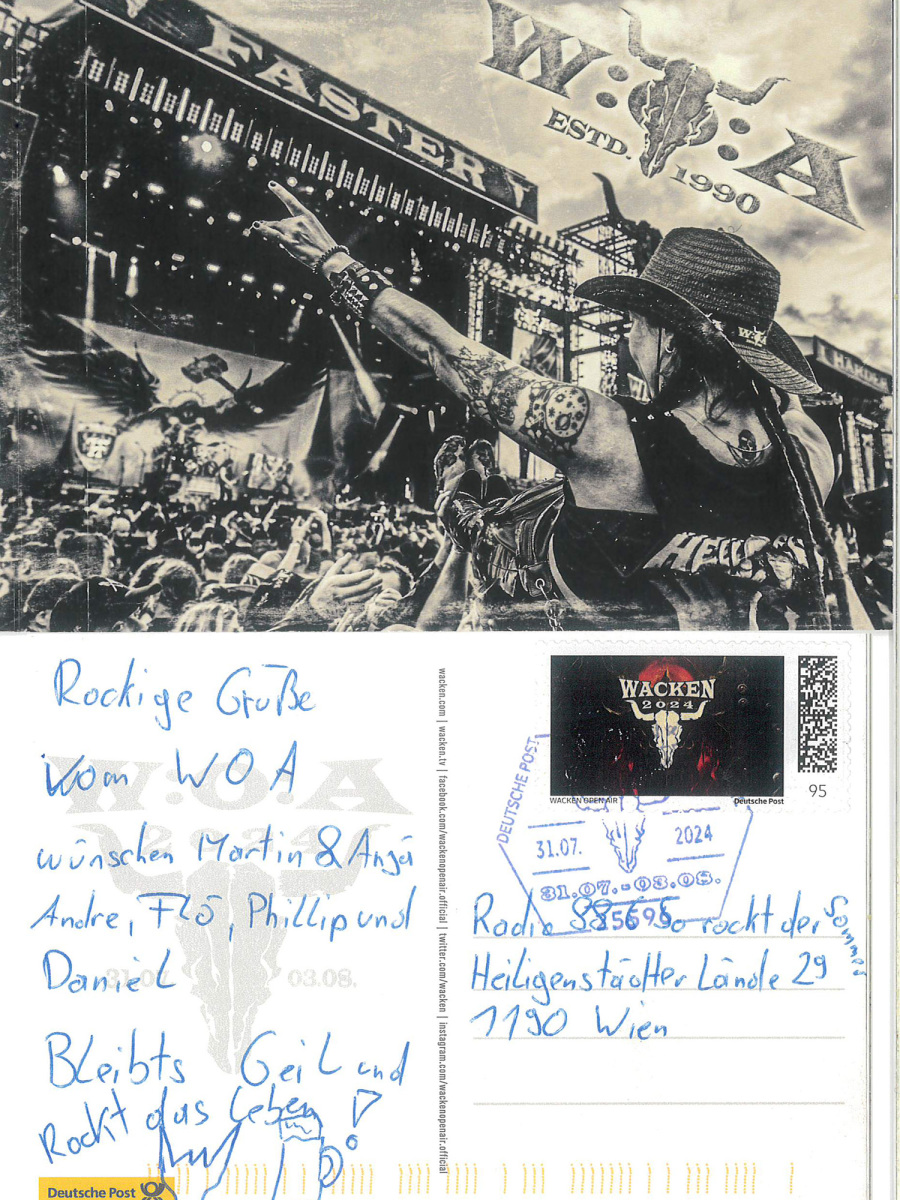 FASTER
W:O:A
ESTD. 1990
W:A
Rockige Grüße
vom WOA
wünschen Martin & Anja
Andre, Flo, Phillip und
Daniel
Bleibts Geil und
Rockt das Leben
W:O:A
2024
31.07.
03.08.
wacken.com | wacken.tv | facebook.com/wackenopenair.official | twitter.com/wacken | instagram.com/wackenopenair.official
WACKEN
2024
WACKEN OPEN AIR
Deutsche Post
95
DEUTSCHE POST
31.07.
2024
31.07.-03.08.
25596
Radio 88.6 So rockt der Sommer
Heiligenstädter Lände 29
1190 Wien
Deutsche Post